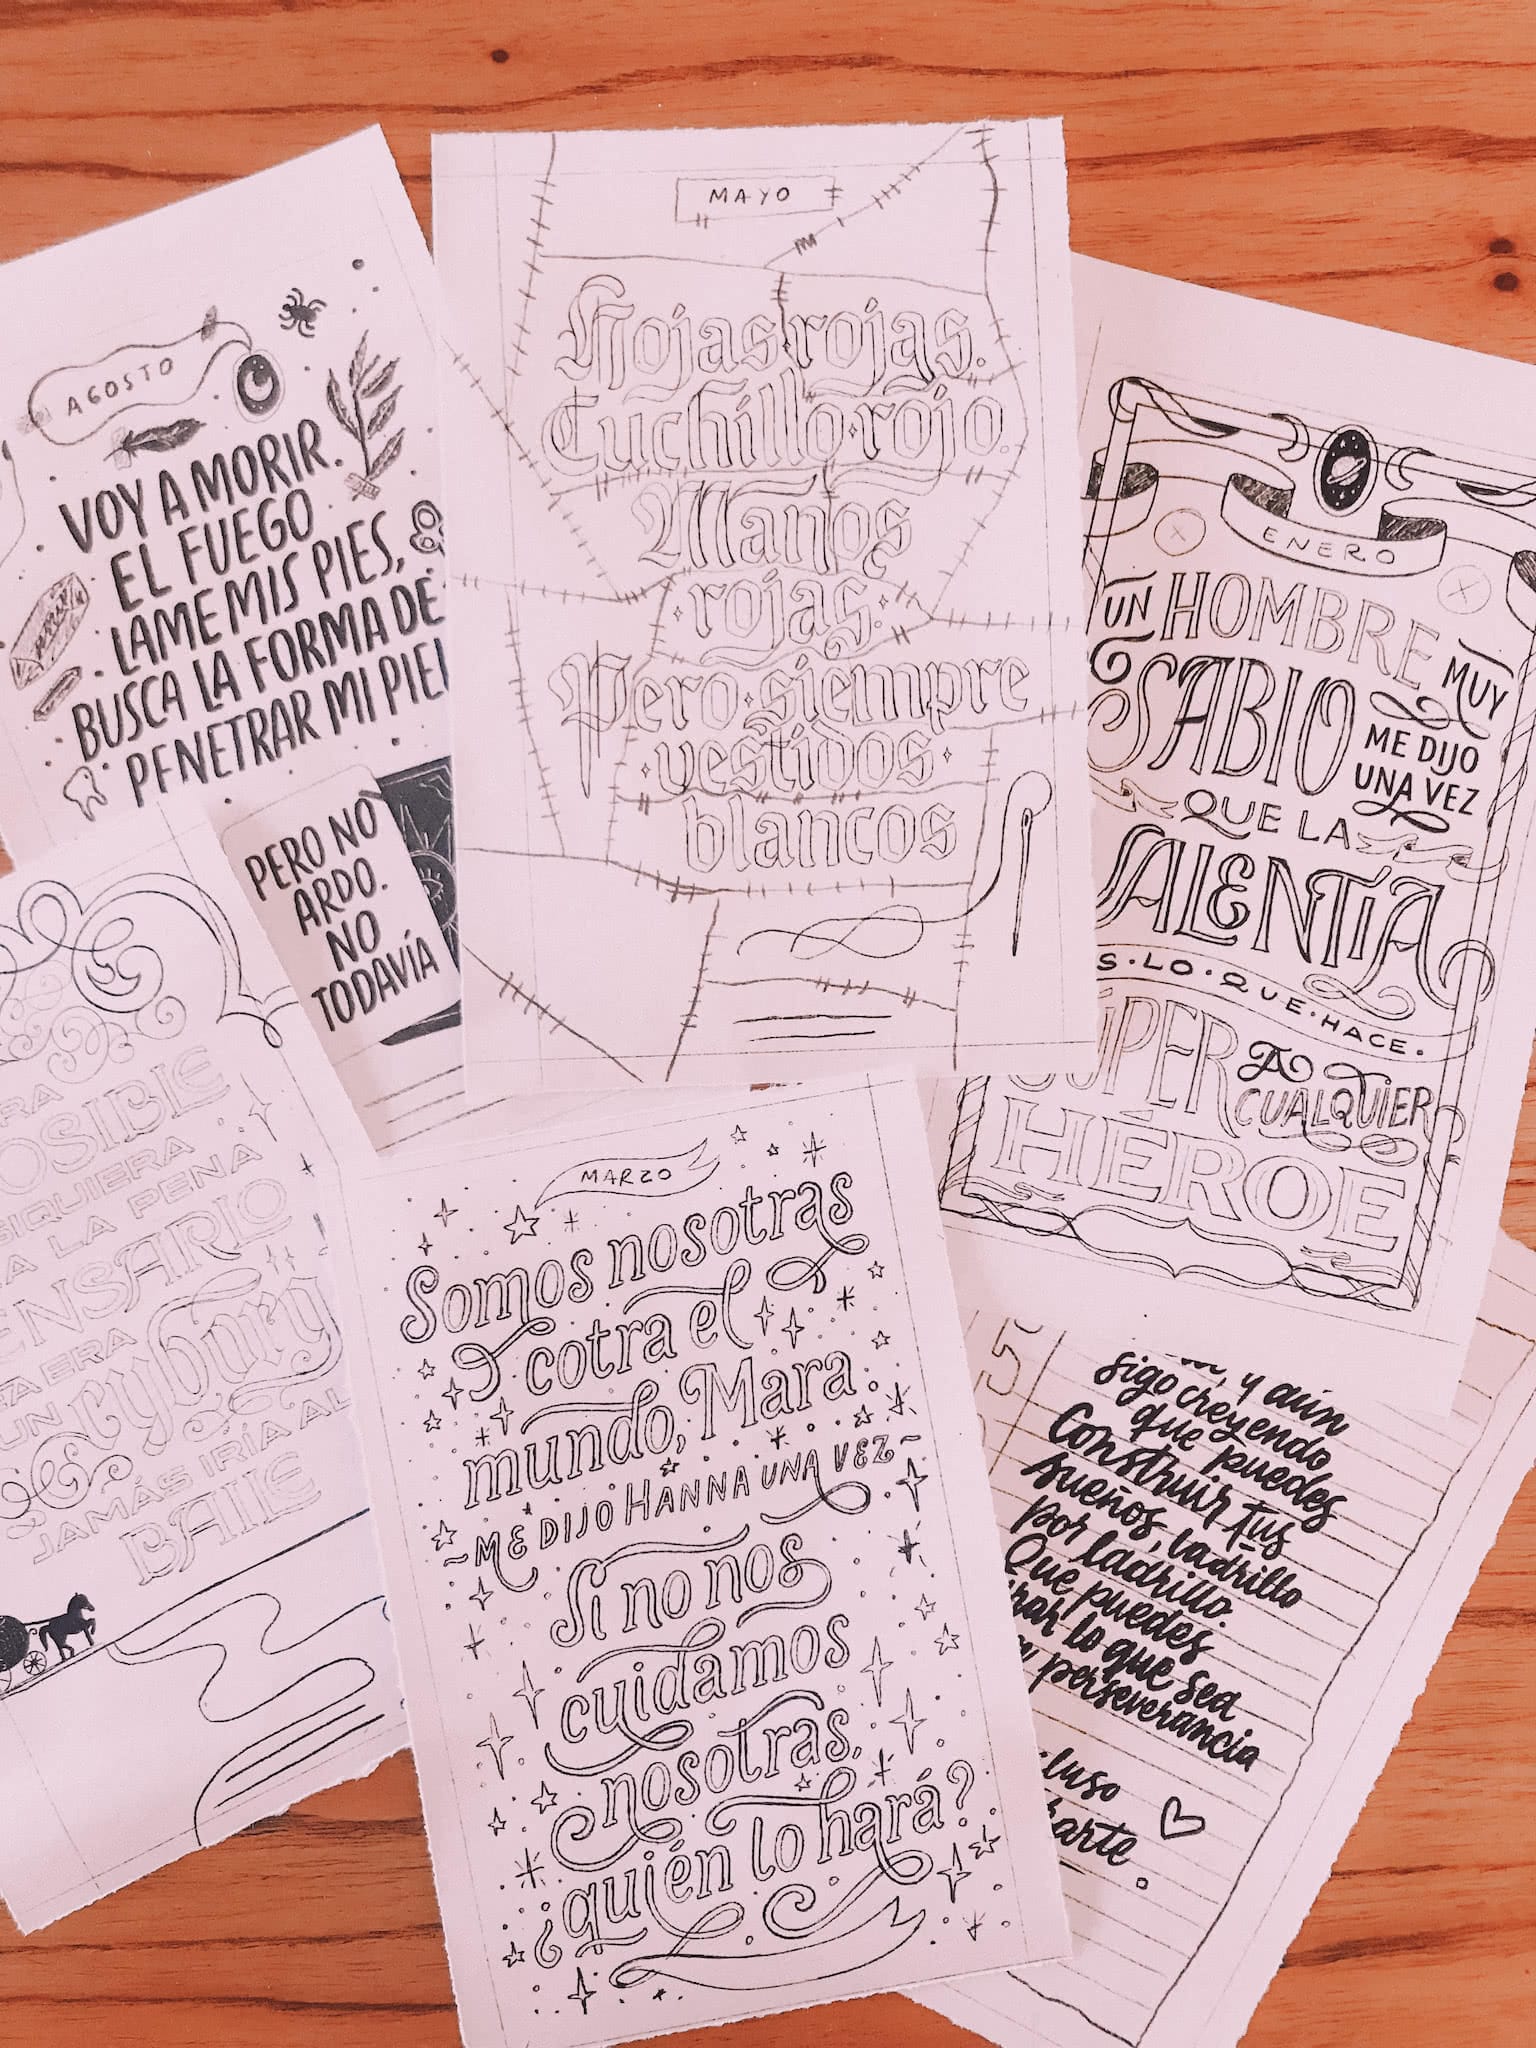 AGOSTO
VOY A MORIR.
EL FUEGO
LAME MIS PIES,
BUSCA LA FORMA DE
PENETRAR MI PIEL
PERO NO
ARDO.
NO
TODAVÍA
MAYO
Hojas rojas.
Cuchillo rojo.
Manos
rojas.
Pero siempre
vestidos
blancos
ENERO
UN HOMBRE MUY
SABIO ME DIJO
UNA VEZ
QUE LA
VALENTÍA
ES·LO·QUE·HACE·
SÚPER A
CUALQUIER
HÉROE
POSIBLE
SIQUIERA
LA PENA
PENSARLO
ERA
UN cyborg
JAMÁS IRÍA AL
BAILE
MARZO
Somos nosotras
cotra el
mundo, Mara
~ME DIJO HANNA UNA VEZ~
Si no nos
cuidamos
nosotras,
¿quién lo hará?
15
, y aún
sigo creyendo
que puedes
Construir tus
sueños, ladrillo
por ladrillo.
Que puedes
lo que sea
perseverancia